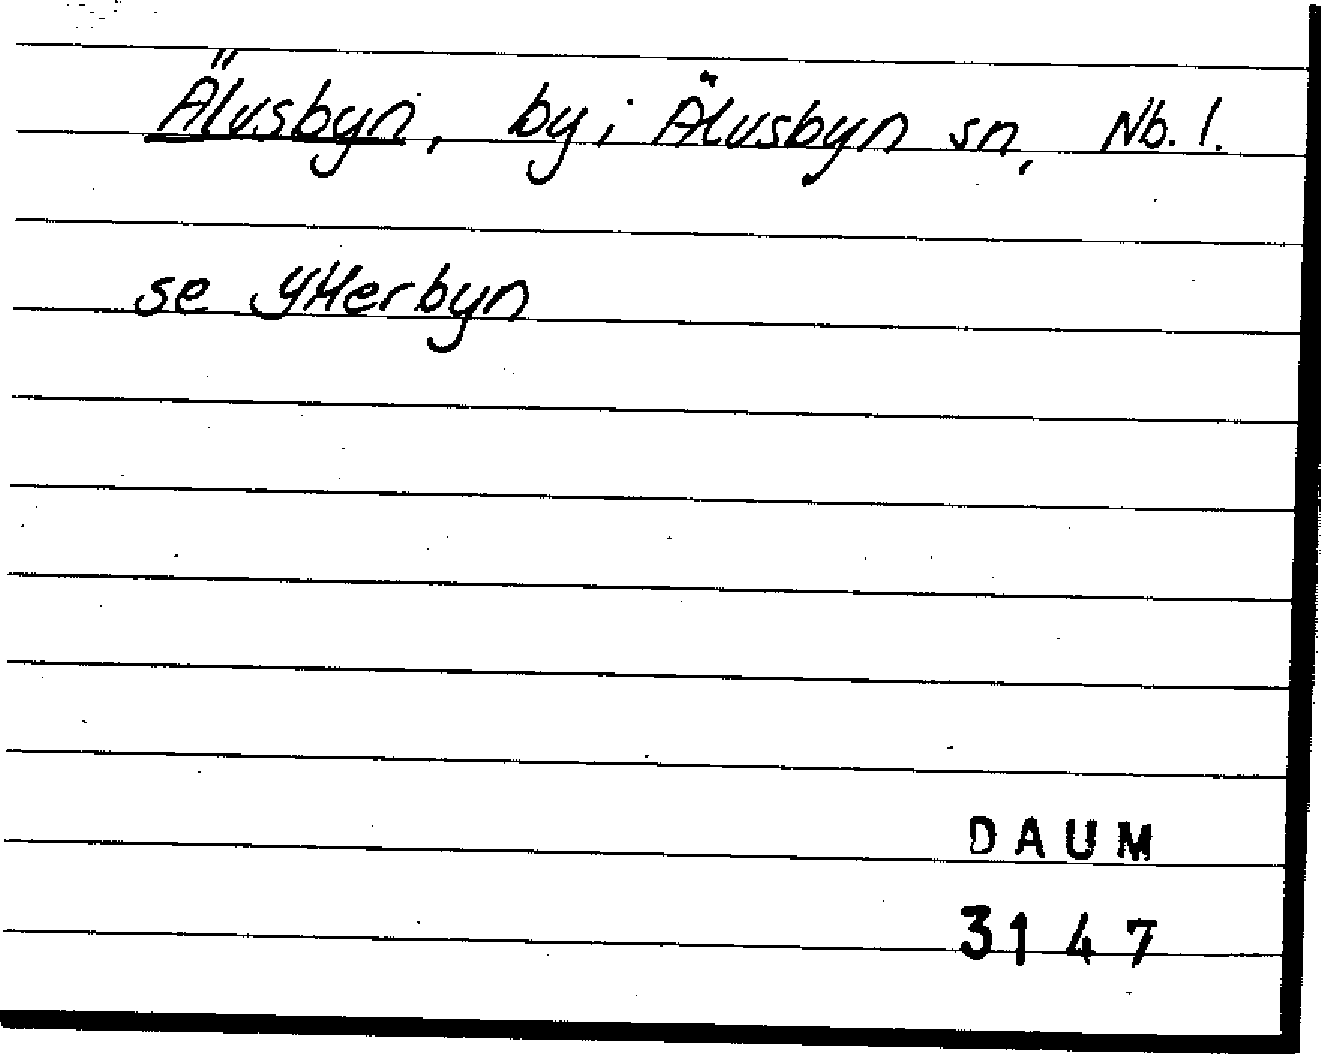 Älvsbyn, by i Älvsbyn sn, Nb. l.
se Ytterbyn
DAUM
3147